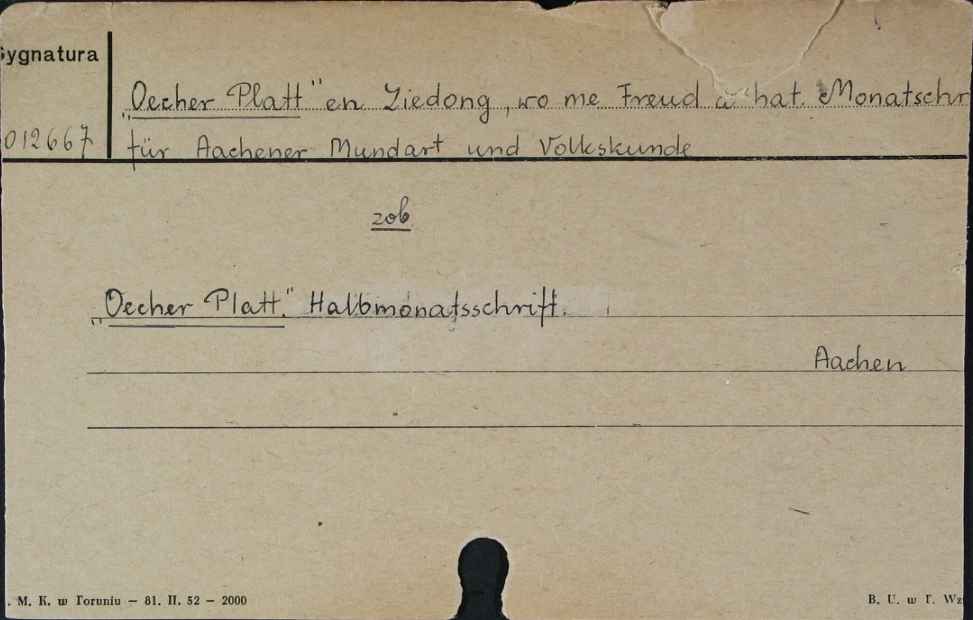 Sygnatura
012667
„Oecher Platt" en Ziedong, wo me Freud a hat. Monatschr
für Aachener Mundart und Volkskunde
zob
„Oecher Platt." Halbmonatsschrift.
Aachen
. M. K. w Toruniu — 81. II. 52 — 2000
B. U. w T. Wz